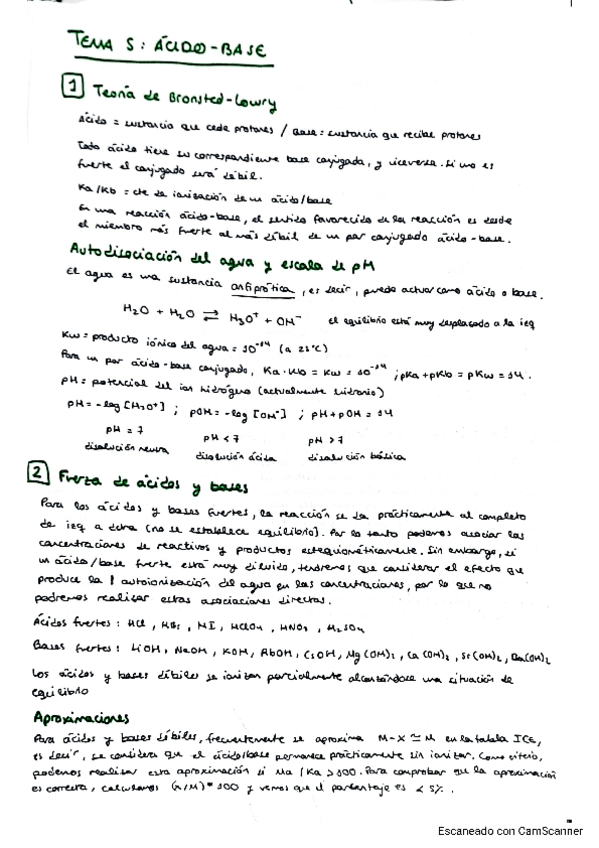 TEMA 5: ÁCIDO-BASE
1 Teoría de Bronsted-Lowry
Ácido = sustancia que cede protones / Base = sustancia que recibe protones
Todo ácido tiene su correspondiente base conjugada, y viceversa. Si uno es
fuerte el conjugado será débil.
Ka/Kb = cte de ionización de un ácido/base
En una reacción ácido-base, el sentido favorecido de la reacción es desde
el miembro más fuerte al más débil de un par conjugado ácido-base.
Autodisociación del agua y escala de pH
El agua es una sustancia anfiprótica, es decir, puede actuar como ácido o base.
H2O + H2O ⇄ H3O+ + OH- el equilibrio está muy desplazado a la izq
Kw = producto iónico del agua = 10^-14 (a 25°C)
Para un par ácido-base conjugado, Ka·Kb = Kw = 10^-14 ; pKa + pKb = pKw = 14.
pH = potencial del ion hidrógeno (actualmente hidronio)
pH = -log [H3O+] ; pOH = -log [OH-] ; pH + pOH = 14
pH = 7 pH < 7 pH > 7
disolución neutra disolución ácida disolución básica
2 Fuerza de ácidos y bases
Para los ácidos y bases fuertes, la reacción se da prácticamente al completo
de izq a dcha (no se establece equilibrio). Por lo tanto podemos asociar las
concentraciones de reactivos y productos estequiométricamente. Sin embargo, si
un ácido/base fuerte está muy diluido, tendremos que considerar el efecto que
produce la autoionización del agua en las concentraciones, por lo que no
podremos realizar estas asociaciones directas.
Ácidos fuertes: HCl, HBr, HI, HClO4, HNO3, H2SO4
Bases fuertes: LiOH, NaOH, KOH, RbOH, CsOH, Mg(OH)2, Ca(OH)2, Sr(OH)2, Ba(OH)2
Los ácidos y bases débiles se ionizan parcialmente alcanzándose una situación de
equilibrio
Aproximaciones
Para ácidos y bases débiles, frecuentemente se aproxima M-X ≃ M en la tabla ICE,
es decir, se considera que el ácido/base permanece prácticamente sin ionizar. Como criterio,
podemos realizar esta aproximación si Ma/Ka > 100. Para comprobar que la aproximación
es correcta, calculamos (x/M)*100 y vemos que el porcentaje es < 5%.
Escaneado con CamScanner